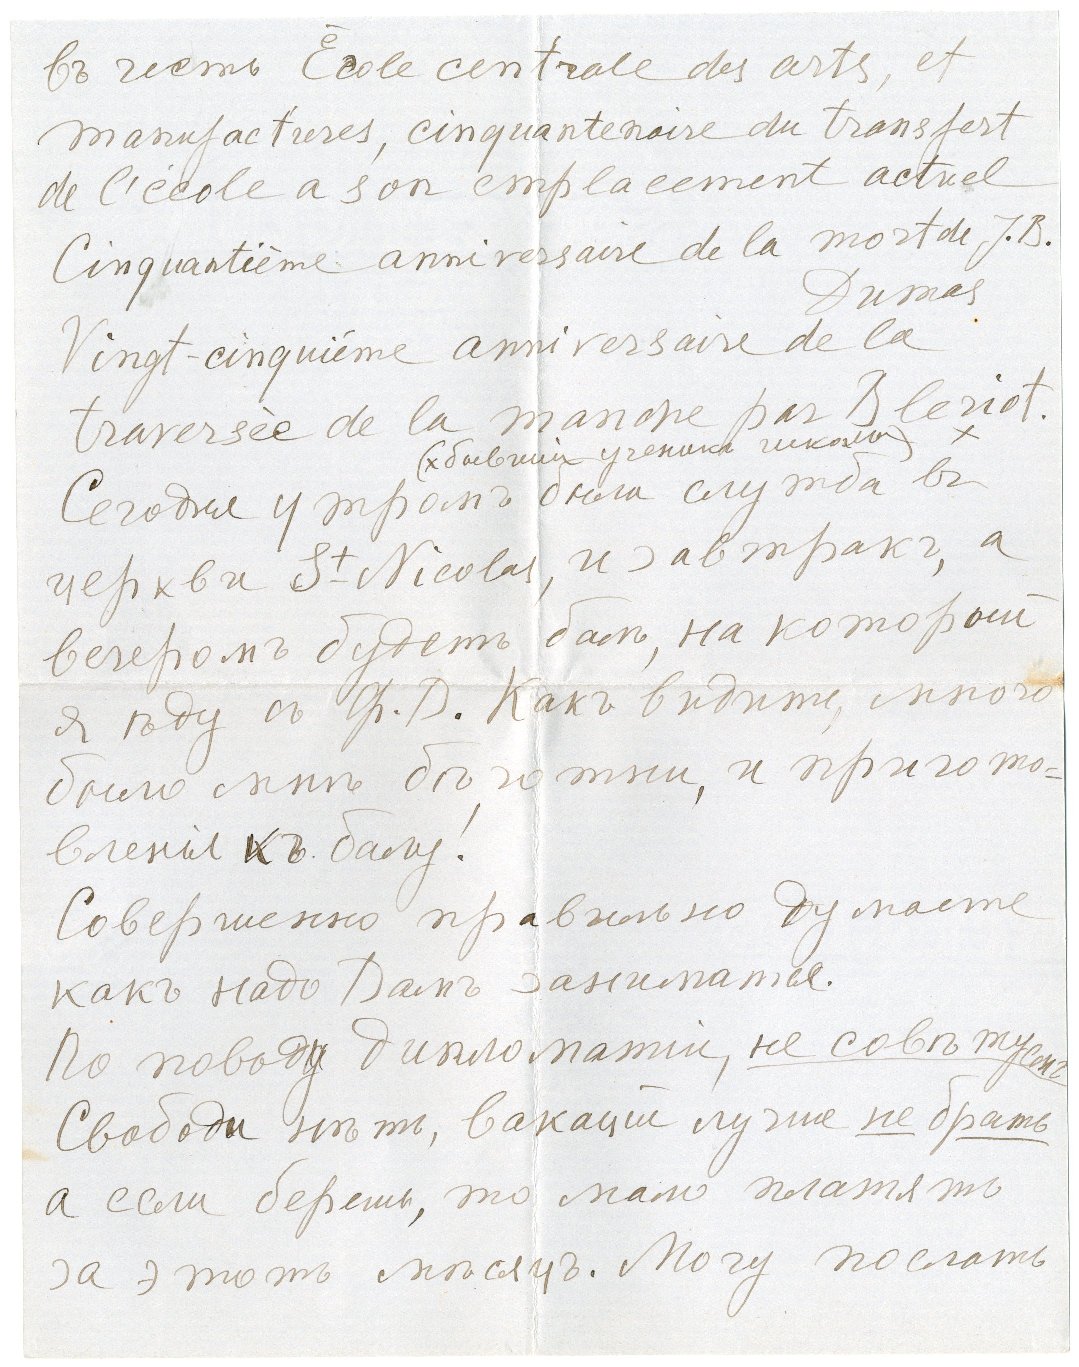 въ честь École centrale des arts, et
manufactures, cinquantenaire du transfert
de l'école a son emplacement actuel
Cinquantième anniversaire de la mort de J.B.
Dumas
Vingt-cinquiéme anniversaire de la
traversèe de la manche par Bleriot.
(x бывший ученикъ школы) x
Сегодня утромъ была служба въ
церкви St Nicolas, и завтракъ, а
вечеромъ будетъ балъ, на который
я ѣду съ Ф.D. Какъ видите, много
было мнѣ бѣготни, и пригото=
вленія къ балу!
Совершенно правильно думаете
какъ надо Вамъ заниматься.
По поводу дипломатіи, не совѣтую
Свободы нѣтъ, вакацій лучше не брать
а если берешь, то мало платятъ
за этотъ мѣсяцъ. Могу послать